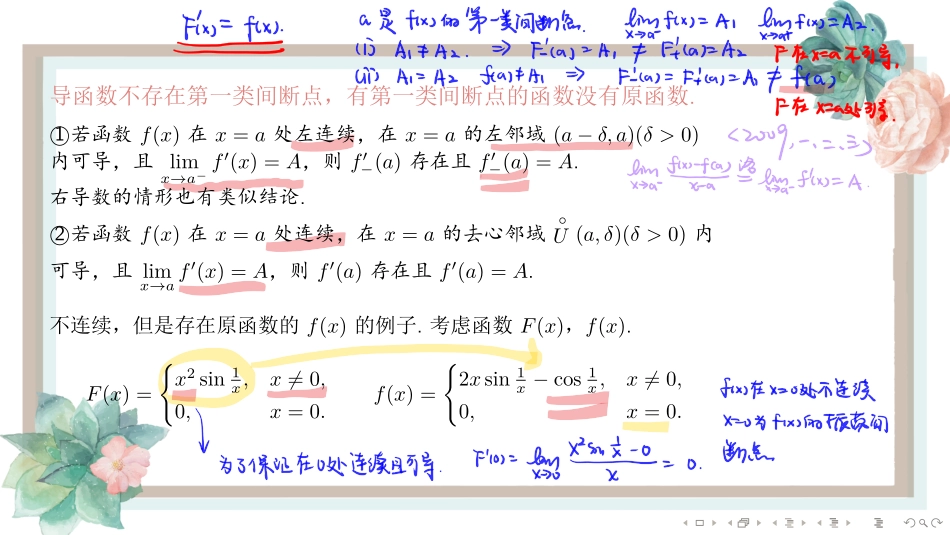 F'(x) = f(x).
a 是 f(x) 的第一类间断点. lim_{x→a⁻} f(x) = A₁ lim_{x→a⁺} f(x) = A₂.
(i) A₁ ≠ A₂. ⇒ F₋'(a) = A₁ ≠ F₊'(a) = A₂ F在x=a不可导,
(ii) A₁ = A₂ f(a) ≠ A₁ ⇒ F₋'(a) = F₊'(a) = A₁ ≠ f(a)
F在x=a处可导.
导函数不存在第一类间断点，有第一类间断点的函数没有原函数.
①若函数 f(x) 在 x = a 处左连续，在 x = a 的左邻域 (a − δ, a)(δ > 0)
<2009, 一、二、三>
内可导，且 lim_{x→a⁻} f′(x) = A，则 f′₋(a) 存在且 f′₋(a) = A.
lim_{x→a⁻} \frac{f(x)-f(a)}{x-a} 洛= lim_{x→a⁻} f'(x) = A.
右导数的情形也有类似结论.
②若函数 f(x) 在 x = a 处连续，在 x = a 的去心邻域 Ů (a, δ)(δ > 0) 内
可导，且 lim_{x→a} f′(x) = A，则 f′(a) 存在且 f′(a) = A.
不连续，但是存在原函数的 f(x) 的例子. 考虑函数 F(x)，f(x).
F(x) = { x² sin 1/x, x ≠ 0, 0, x = 0. f(x) = { 2x sin 1/x − cos 1/x, x ≠ 0, 0, x = 0.
f(x)在x=0处不连续
x=0为f(x)的振荡间
断点
为了保证在0处连续且可导. F'(0) = lim_{x→0} \frac{x² sin 1/x − 0}{x} = 0.